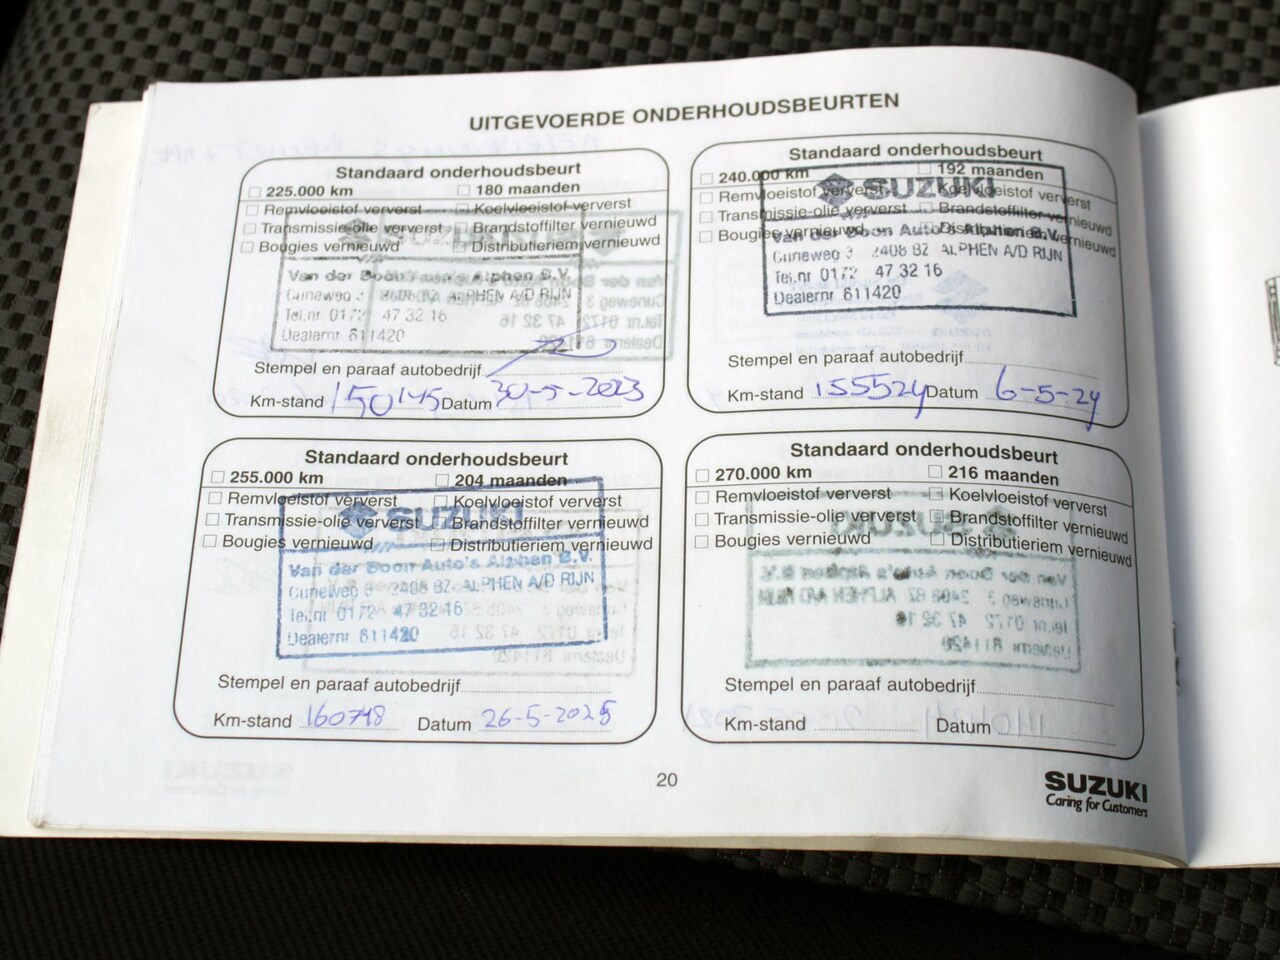 UITGEVOERDE ONDERHOUDSBEURTEN
Standaard onderhoudsbeurt
225.000 km 180 maanden
Remvloeistof ververst Koelvloeistof ververst
Transmissie-olie ververst Brandstoffilter vernieuwd
Bougies vernieuwd Distributieriem vernieuwd
SUZUKI
Van der Boon Auto's Alphen B.V.
Cuneweg 3 2408 BZ ALPHEN A/D RIJN
Tel.nr 0172 47 32 16
Dealernr 611420
Stempel en paraaf autobedrijf
Km-stand 150145 Datum 30-5-2023
Standaard onderhoudsbeurt
240.000 km 192 maanden
Remvloeistof ververst Koelvloeistof ververst
Transmissie-olie ververst Brandstoffilter vernieuwd
Bougies vernieuwd Distributieriem vernieuwd
SUZUKI
Van der Boon Auto's Alphen B.V.
Cuneweg 3 2408 BZ ALPHEN A/D RIJN
Tel.nr 0172 47 32 16
Dealernr 611420
Stempel en paraaf autobedrijf
Km-stand 155524 Datum 6-5-24
Standaard onderhoudsbeurt
255.000 km 204 maanden
Remvloeistof ververst Koelvloeistof ververst
Transmissie-olie ververst Brandstoffilter vernieuwd
Bougies vernieuwd Distributieriem vernieuwd
SUZUKI
Van der Boon Auto's Alphen B.V.
Cuneweg 3 2408 BZ ALPHEN A/D RIJN
Tel.nr 0172 47 32 16
Dealernr 611420
Stempel en paraaf autobedrijf
Km-stand 160748 Datum 26-5-2025
Standaard onderhoudsbeurt
270.000 km 216 maanden
Remvloeistof ververst Koelvloeistof ververst
Transmissie-olie ververst Brandstoffilter vernieuwd
Bougies vernieuwd Distributieriem vernieuwd
Stempel en paraaf autobedrijf
Km-stand Datum
20
SUZUKI
Caring for Customers